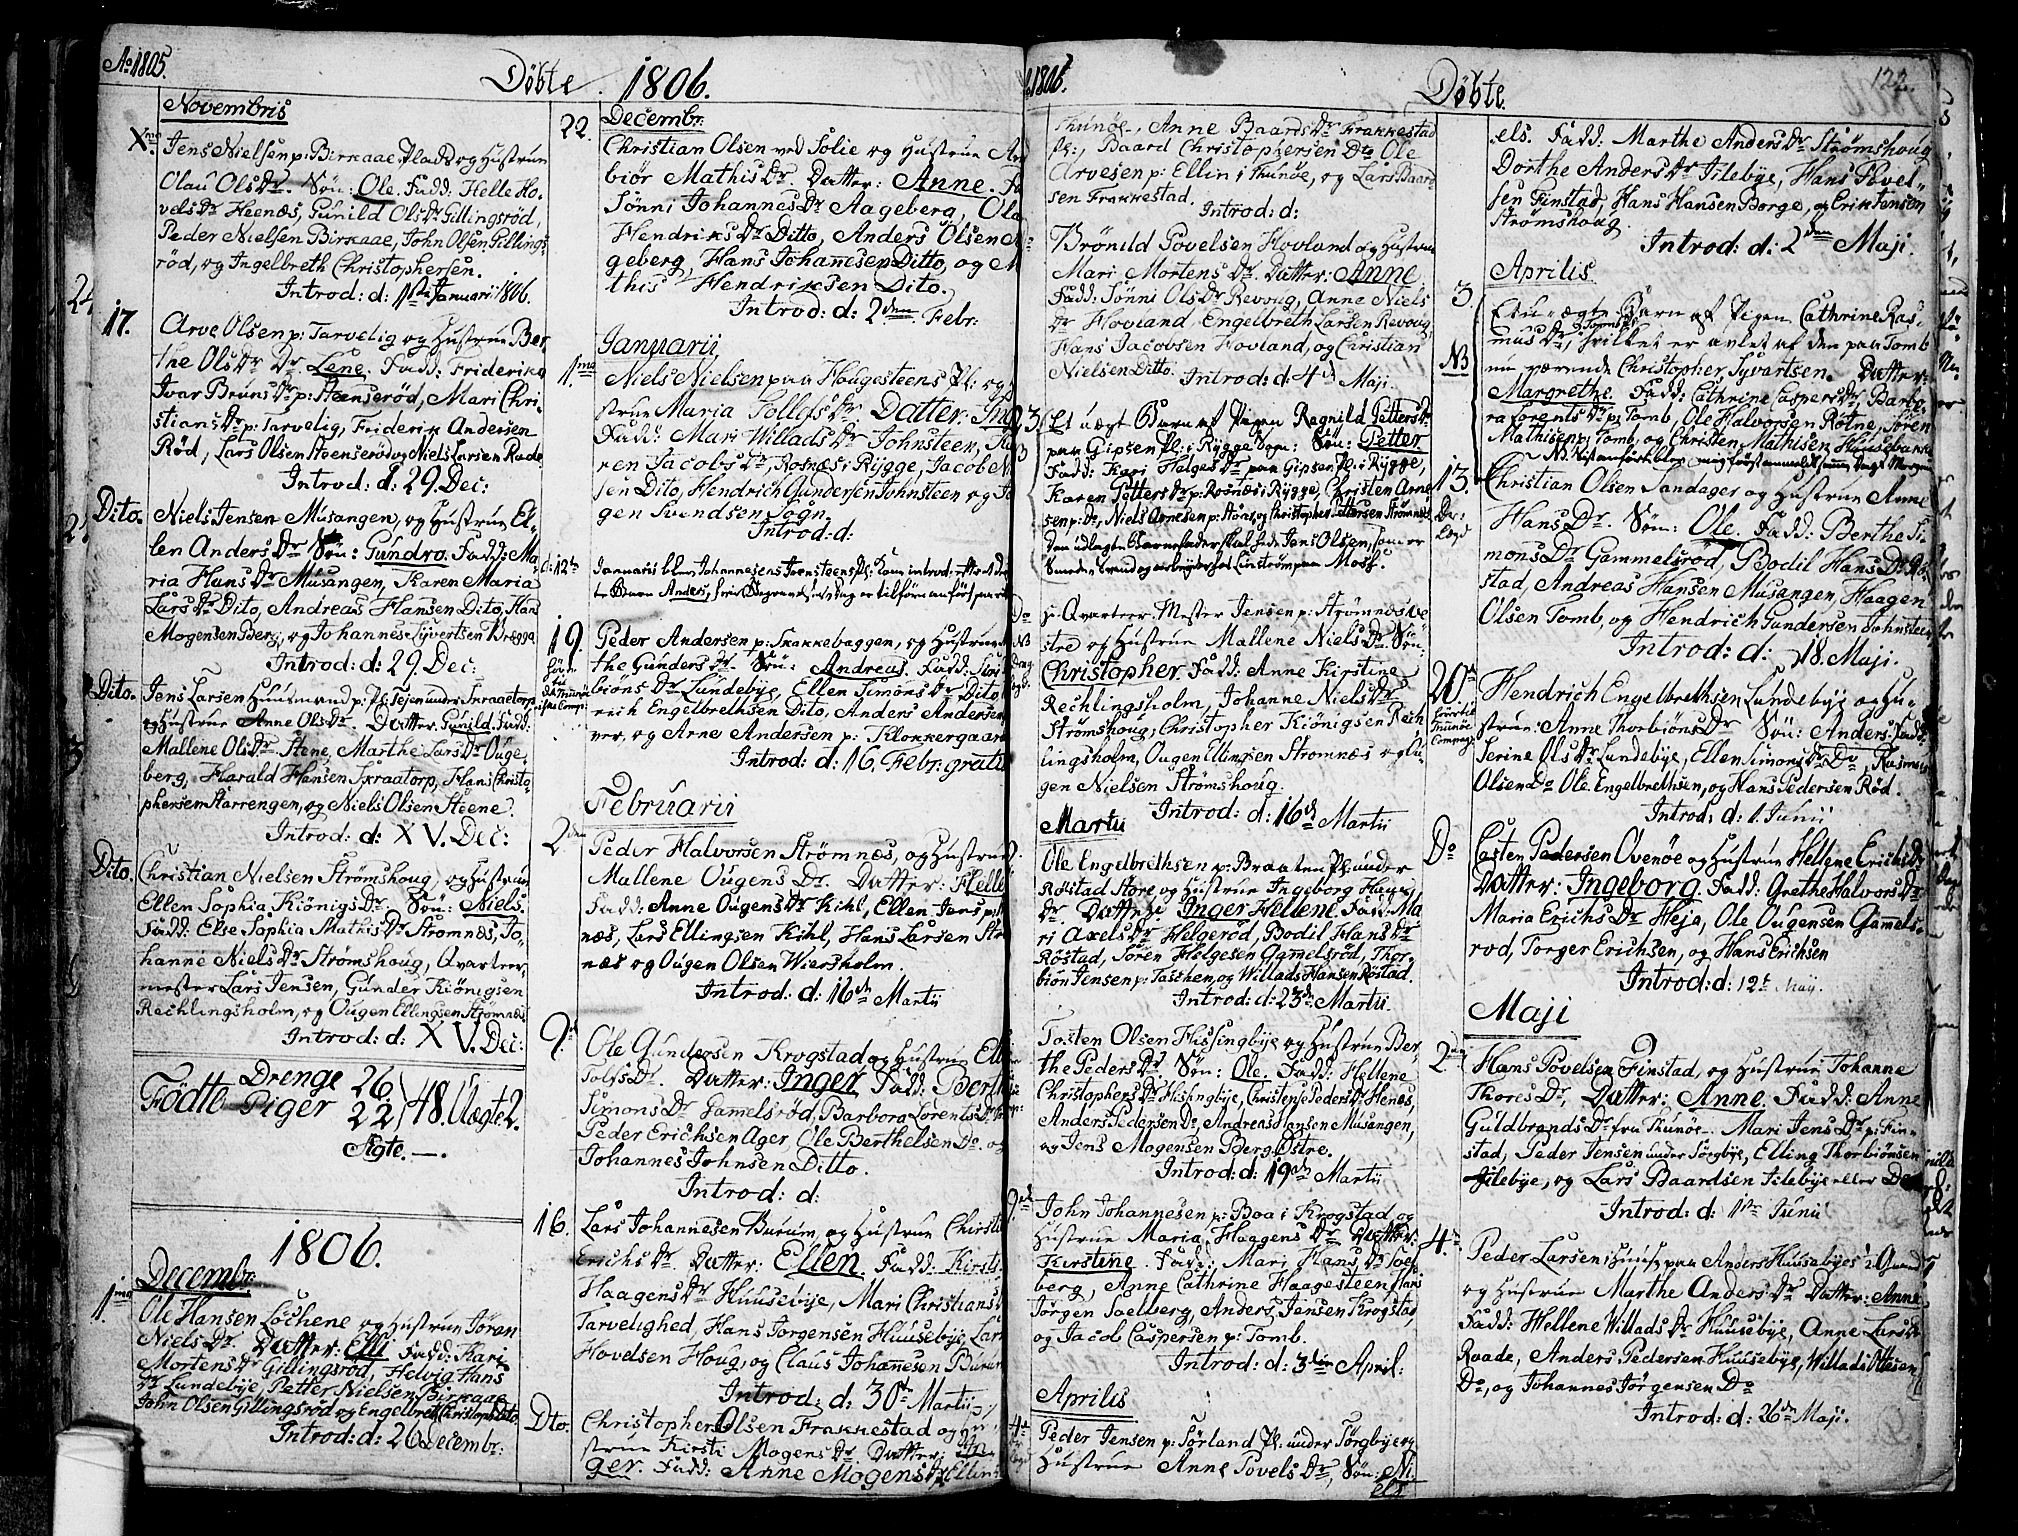 Ao 1805.
Döbte. 1806.
Novembris
Xma Jens Nielsen p: Birkaae Plads og Hustrue
Olau OlsDr. Sön: Ole. Fadd: Helle Ho-
velsDr Heenæs, Gunild OlsDr Gillingsröd,
Peder Nielsen Birkaae, John Olsen Gillings
röd, og Ingelbreth Christophersen.
Introd: d: 1ste Januarii 1806.
17. Arve Olsen p: Tarvelig og Hustrue Ber,
the OlsDr Dr. Lene. Fadd: Friderika
Ivar BrunsDr p: Steenseröd, Mari Chri-
stiansDr p: Tarvelig, Friderik Andersen
Röd, Lars Olsen Steenseröd og Niels Larsen Rade
Introd: d: 29. Dec:
Dito. Niels Jensen Musangen, og Hustrue El-
len AndersDr Sön: Gundro. Fadd: Ma-
ria HansDr Musangen, Karen Maria
LarsDr Dito, Andreas Hansen Dito, Hans
Mogensen Berg, og Johannes Syvertsen Krægga
Introd: d: 29. Dec:
Dito. Jens Larsen Huusmand p: Pl: Tejen under Skraatorp
og Hustrue Anne OlsDr. Datter: Gunild. Fadd:
Mallene OlsDr Stene, Marthe LarsDr Ouge-
berg, Harald Hansen Skraatorp, Hans Christo-
phersen Starrengen, og Niels Olsen Steene.
Introd: d: XV. Dec:
Dito. Christian Nielsen Strømshoug, og Hustrue
Ellen Sophia KiönigsDr. Sön: Niels.
Fadd: Else Sophia MathisDr Stromnæs, Jo-
hanne NielsDr Strømshoug, Qvarteer
mester Lars Jensen, Gunder Kiönigsen
Rechlingsholm, og Ougen Ellingsen Strömnæs
Introd: d: XV. Dec:
Födte Drenge 26
Piger 22 } 48. Uægte 2.
Ægte. —.
1806.
Decembr.
1ma Ole Hansen Löchene og Hustrue Jöran
NielsDr. Datter: Elli Fadd: Kari
MortensDr Gillingsröd, Helvig Hans
Dr Lundebye, Petter Nielsen Birkaae
John Olsen Gillingsröd og Engelbret Christophs Dito
Introd: d: 26 Decembr:
22. Decembr.
Christian Olsen ved Solie og Hustrue
biör MathisDr Datter: Anne.
Sönni JohannesDr Aageberg, Ola
HendriksDr Ditto, Anders Olsen
geberg, Hans Johannesen Ditto, og
this Hendriksen Dito.
Introd: d: 2den Febr:
Januarii
1ma Niels Nielsen paa Hougesteens Pl: og
strue Maria TollefsDr Datter:
Fadd: Mari WilladsDr Johnsteen,
ren JacobsDr, Rosnæs i Rygge, Jacob
sen Dito, Hendrich Gundersen Johnsteen og
gen Svendsen Sogn
Introd: d:
d: 12te Januarii blev Johannesens Jonsteens Pl: Kone introd: efter det
te Barn Anders, hvis er tilforn anfört paa
19. Peder Andersen p: Krakkebaggen, og Hustrue
the GundersDr. Sön: Andreas. Fadd:
biönsDr Lundebye, Ellen SimonsDr Dito
rich Engelbrethsen Dito, Anders Andersen
ver, og Arne Andersen p: Klokkergaard
Introd: d: 16. Febr: gratis
Februarii
2den Peder Halvorsen Strømnæs, og Hustrue
Mallene OugensDr. Datter: Helle
Fadd: Anne OugensDr Kihl, Ellen
næs, Lars Ellingsen Kihl, Hans Larsen
næs og Ougen Olsen Wiersholm.
Introd: d: 16de Martii
9. Ole Gundersen Krogstad og Hustrue
TolfsDr. Datter: Inger Fadd: Berthe
SimonsDr Gamelsröd, Barbora LorentsDr
Peder Erichsen Ager, Ole Berthelsen Do. og
Johannes Johnsen Ditto.
Introd: d:
16. Lars Johannesen Burum, og Hustrue Christi
ErichsDr. Datter: Ellen. Fadd: Kirsti
HaagensDr Huusebye, Mari Christians
Tarvelighed, Hans Jorgensen Huusebye, Lars
Hovelsen Houg, og Claus Johanesen Burum
Introd: d: 30te Martii
Dto. Christopher Olsen Frakkestad og
strue Kirsti MogensDr. Datter: In
ger. Fadd: Anne MogensDr Ellin
1806.
Döbte.
122.
Thunöe, Anne BaardsDr Frakkestad
Pl:, Baard Christophersen Do Ole
Arvesen p: Ellin i Thunöe, og Lars Baard
sen Frakkestad.
Introd: d:
Brönild Povelsen Hovland og Hustrue
Mari MortensDr. Datter: Anne
Fadd: Sönni OlsDr Revoug, Anne Niels
Dr Hovland, Engelbreth Larsen Revoug,
Hans Jacobsen Hovland, og Christian
Nielsen Ditto.
Introd: d 4de Maji.
23. Et uægt Barn af Pigen Regnild PettersDr
paa Gipsen Pl: i Rygge Sogn. Sön: Petter
Fadd: Kari HelgesDr paa Gipsen Pl: i Rygge,
Karen PettersDr p: Rosnæs i Rygge, Christen Arne
sen p: Do, Niels Arnesen p: Störe, og Christopher Pettersen Strömnæs.
Den udlagte Barnefader skal hede Jens Olsen, som er
Smede Svend og arbejder hos Linström paa Moss.
Do
NB
hr Qvarteer-Mester Jensen p: Strømnæs ve
stre og Hustrue Mallene NielsDr Sön:
Christopher. Fadd: Anne Kirstine
Rechlingsholm, Johanne NielsDr
Strømshoug, Christopher Kiönigsen Rech
lingsholm, Ougen Ellingsen Stromnæs og Ou-
gen Nielsen Strømshoug.
Introd: d: 16de Martii
Martii
Ole Engelbrethsen p: Braaten Pl: under
Röstad Store og Hustrue Ingeborg Hans
Dr. Datter Inger Hellene. Fadd: Ma
ri AxelsDr Helgeröd, Bodil HansDr
Röstad, Sören Helgesen Gamelsröd, Thor-
biön Jensen p: Taschen, og Willads Hansen Röstad.
Introd: d: 23de Martii.
Tosten Olsen Hissingbye og Hustrue Ber-
the PedersDr. Sön: Ole. Fadd: Hellene
ChristophersDr Hissingbye, Christense PedersDr Henæs,
Anders Pedersen Do, Andreas Hansen Musangen,
og Jens Mogensen Berg Østre.
Introd: d: 19de Martii
9de John Johannesen p: Boa i Krogstad og
Hustrue Maria HaagensDr Datter:
Kirstine. Fadd: Mari HansDr Soel-
berg, Anne Cathrine Haagesteen, Hans
Jörgen Soelberg, Anders Jensen Krogstad,
og Jacob Caspersen p: Tomb.
Introd: d: 3die April:
Aprilis
4de Peder Jensen p: Sörland Pl: under Sörgbye og
Hustrue Anne PovelsDr, Sön: Ni-
els
els. Fadd: Marthe AndersDr Strømshoug
Dorthe AndersDr Jilebye, Hans Povel-
sen Finstad, Hans Hansen Borge, og Erik Jensen
Strømshoug.
Introd: d: 2den Maji.
Aprilis
3.
NB
Et u-ægte Barn af Pigen Cathrine Ras,
musDr, Tomb, hvilket er avlet af den paa Tomb
nu værende Christopher Syvartsen. Datter:
Margrethe. Fadd: Cathrine CaspersDr, Barbo
ra LorentsDr p: Tomb, Ole Halvorsen Rötne, Sören
Mathisen p: Tomb, og Christen Mathisen Huusebakke
13. Christian Olsen Sandager og Hustrue Anne
HansDr. Sön: Ole. Fadd: Berthe Si
monsDr Gammelsrod, Bodil HansDr Rö-
stad, Andreas Hansen Musangen, Haagen
Olsen Tomb, og Hendrich Gundersen Johnsteen
Introd: d: 18. Maji.
20de Hendrich Engelbrethsen Lundebye og Hu-
strue Anne ThorbiönsDr Sön: Anders. Fadd:
Serine OlsDr Lundebye, Ellen SimonsDr Do, Rasmus
Olsen Do Ole Engelbrethsen, og Hans Pedersen Röd.
Introd: d: 1. Junii
Do Casten Pedersen Ovenöe og Hustrue Hellene ErichsDr
Datter: Ingeborg. Fadd: Grethe HalvorsDr
Maria ErichsDr Heja, Ole Ougensen Gamels-
rod, Torger Erichsen, og Hans Erichsen
Introd: d: 12te Maij.
Maji
2den Hans Povelsen Finstad, og Hustrue Johanne
ThoresDr, Datter: Anne. Fadd: Anne
GuldbrandsDr fra Thunöe. Mari JensDr p: Fin-
stad, Peder Jensen under Sörgbye, Elling Thorbiörnsen
Jilebye, og Lars Baardsen Jilebye eller
Introd: d: 1ste Junii
4. Peder Larsen, Huusm paa Anders Huusebyes Grund
og Hustrue Marthe AndersDr Datter: Anne,
Fadd: Hellene WilladsDr Huusebye, Anne LarsDr
Raade, Anders Pedersen Huusebye, Willads Ottesen
Do, og Johannes Jörgensen Do
Introd: d: 26de Maji.